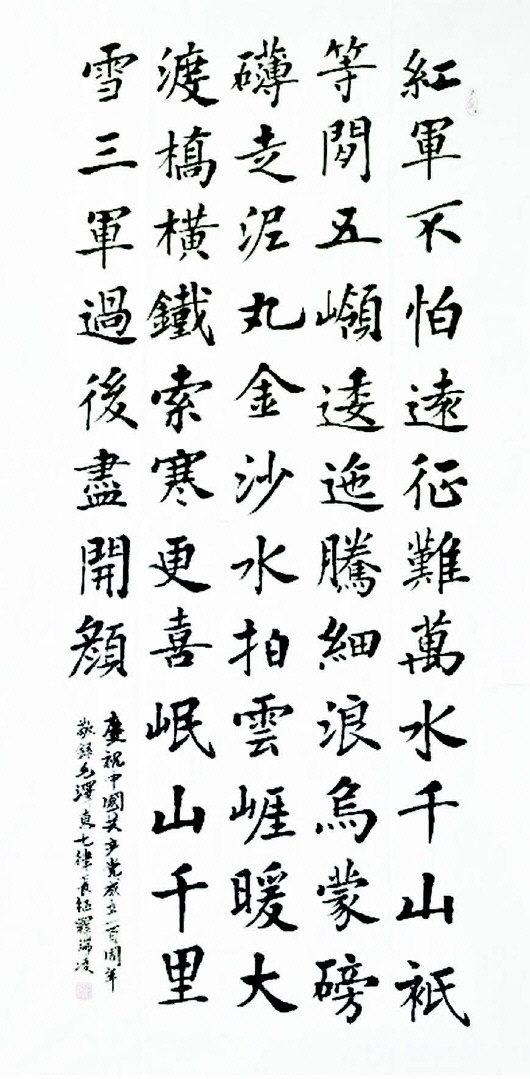 紅軍不怕遠征難萬水千山衹
等閒五嶺逶迤騰細浪烏蒙磅
礴走泥丸金沙水拍雲崕暖大
渡橋橫鐵索寒更喜岷山千里
雪三軍過後盡開顏
慶祝中國共产党成立一百周年
敬錄毛澤東七律長征羅瑞凌